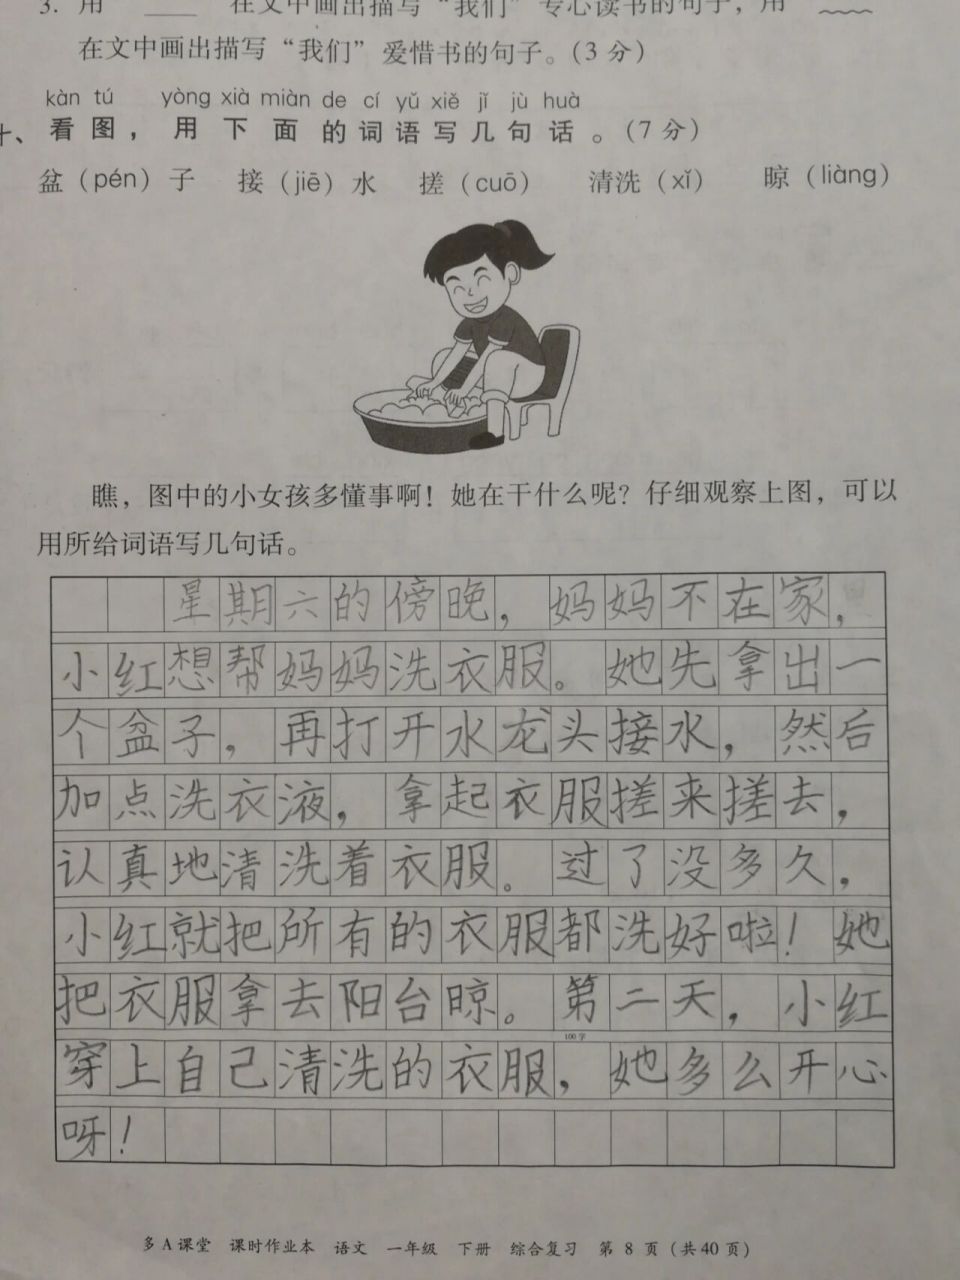 3. 用____在文中画出描写“我们”专心读书的句子，用
在文中画出描写“我们”爱惜书的句子。（3 分）
kàn tú yòng xià miàn de cí yǔ xiě jǐ jù huà
十、看图，用下面的词语写几句话。（7 分）
盆（pén）子 接（jiē）水 搓（cuō） 清洗（xǐ） 晾（liàng）
瞧，图中的小女孩多懂事啊！她在干什么呢？仔细观察上图，可以
用所给词语写几句话。
星期六的傍晚，妈妈不在家，
小红想帮妈妈洗衣服。她先拿出一
个盆子，再打开水龙头接水，然后
加点洗衣液，拿起衣服搓来搓去，
认真地清洗着衣服。过了没多久，
小红就把所有的衣服都洗好啦！她
把衣服拿去阳台晾。第二天，小红
100字
穿上自己清洗的衣服，她多么开心
呀！
多 A 课堂 课时作业本 语文 一年级 下册 综合复习 第 8 页（共 40 页）